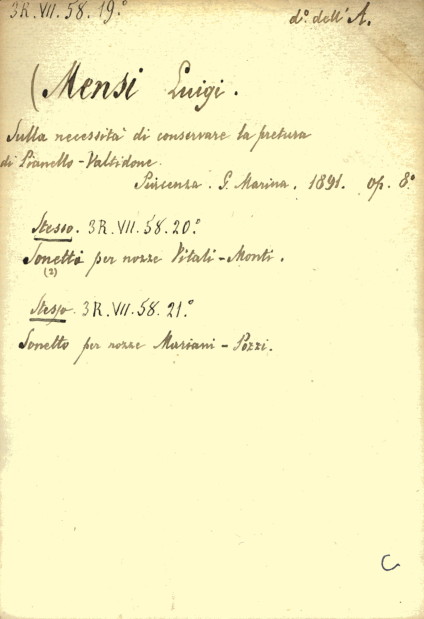 3R.VII.58.19.° d.° dell'A.
(Mensi Luigi.
Sulla necessità di conservare la pretura
di Pianello-Valtidone.
Piacenza. G. Marina. 1891. op. 8.°
Stesso. 3R.VII.58.20.°
Sonetti per nozze Vitali-Monti.
(2)
Stesso. 3R.VII.58.21.°
Sonetto per nozze Mariani-Pozzi.
C